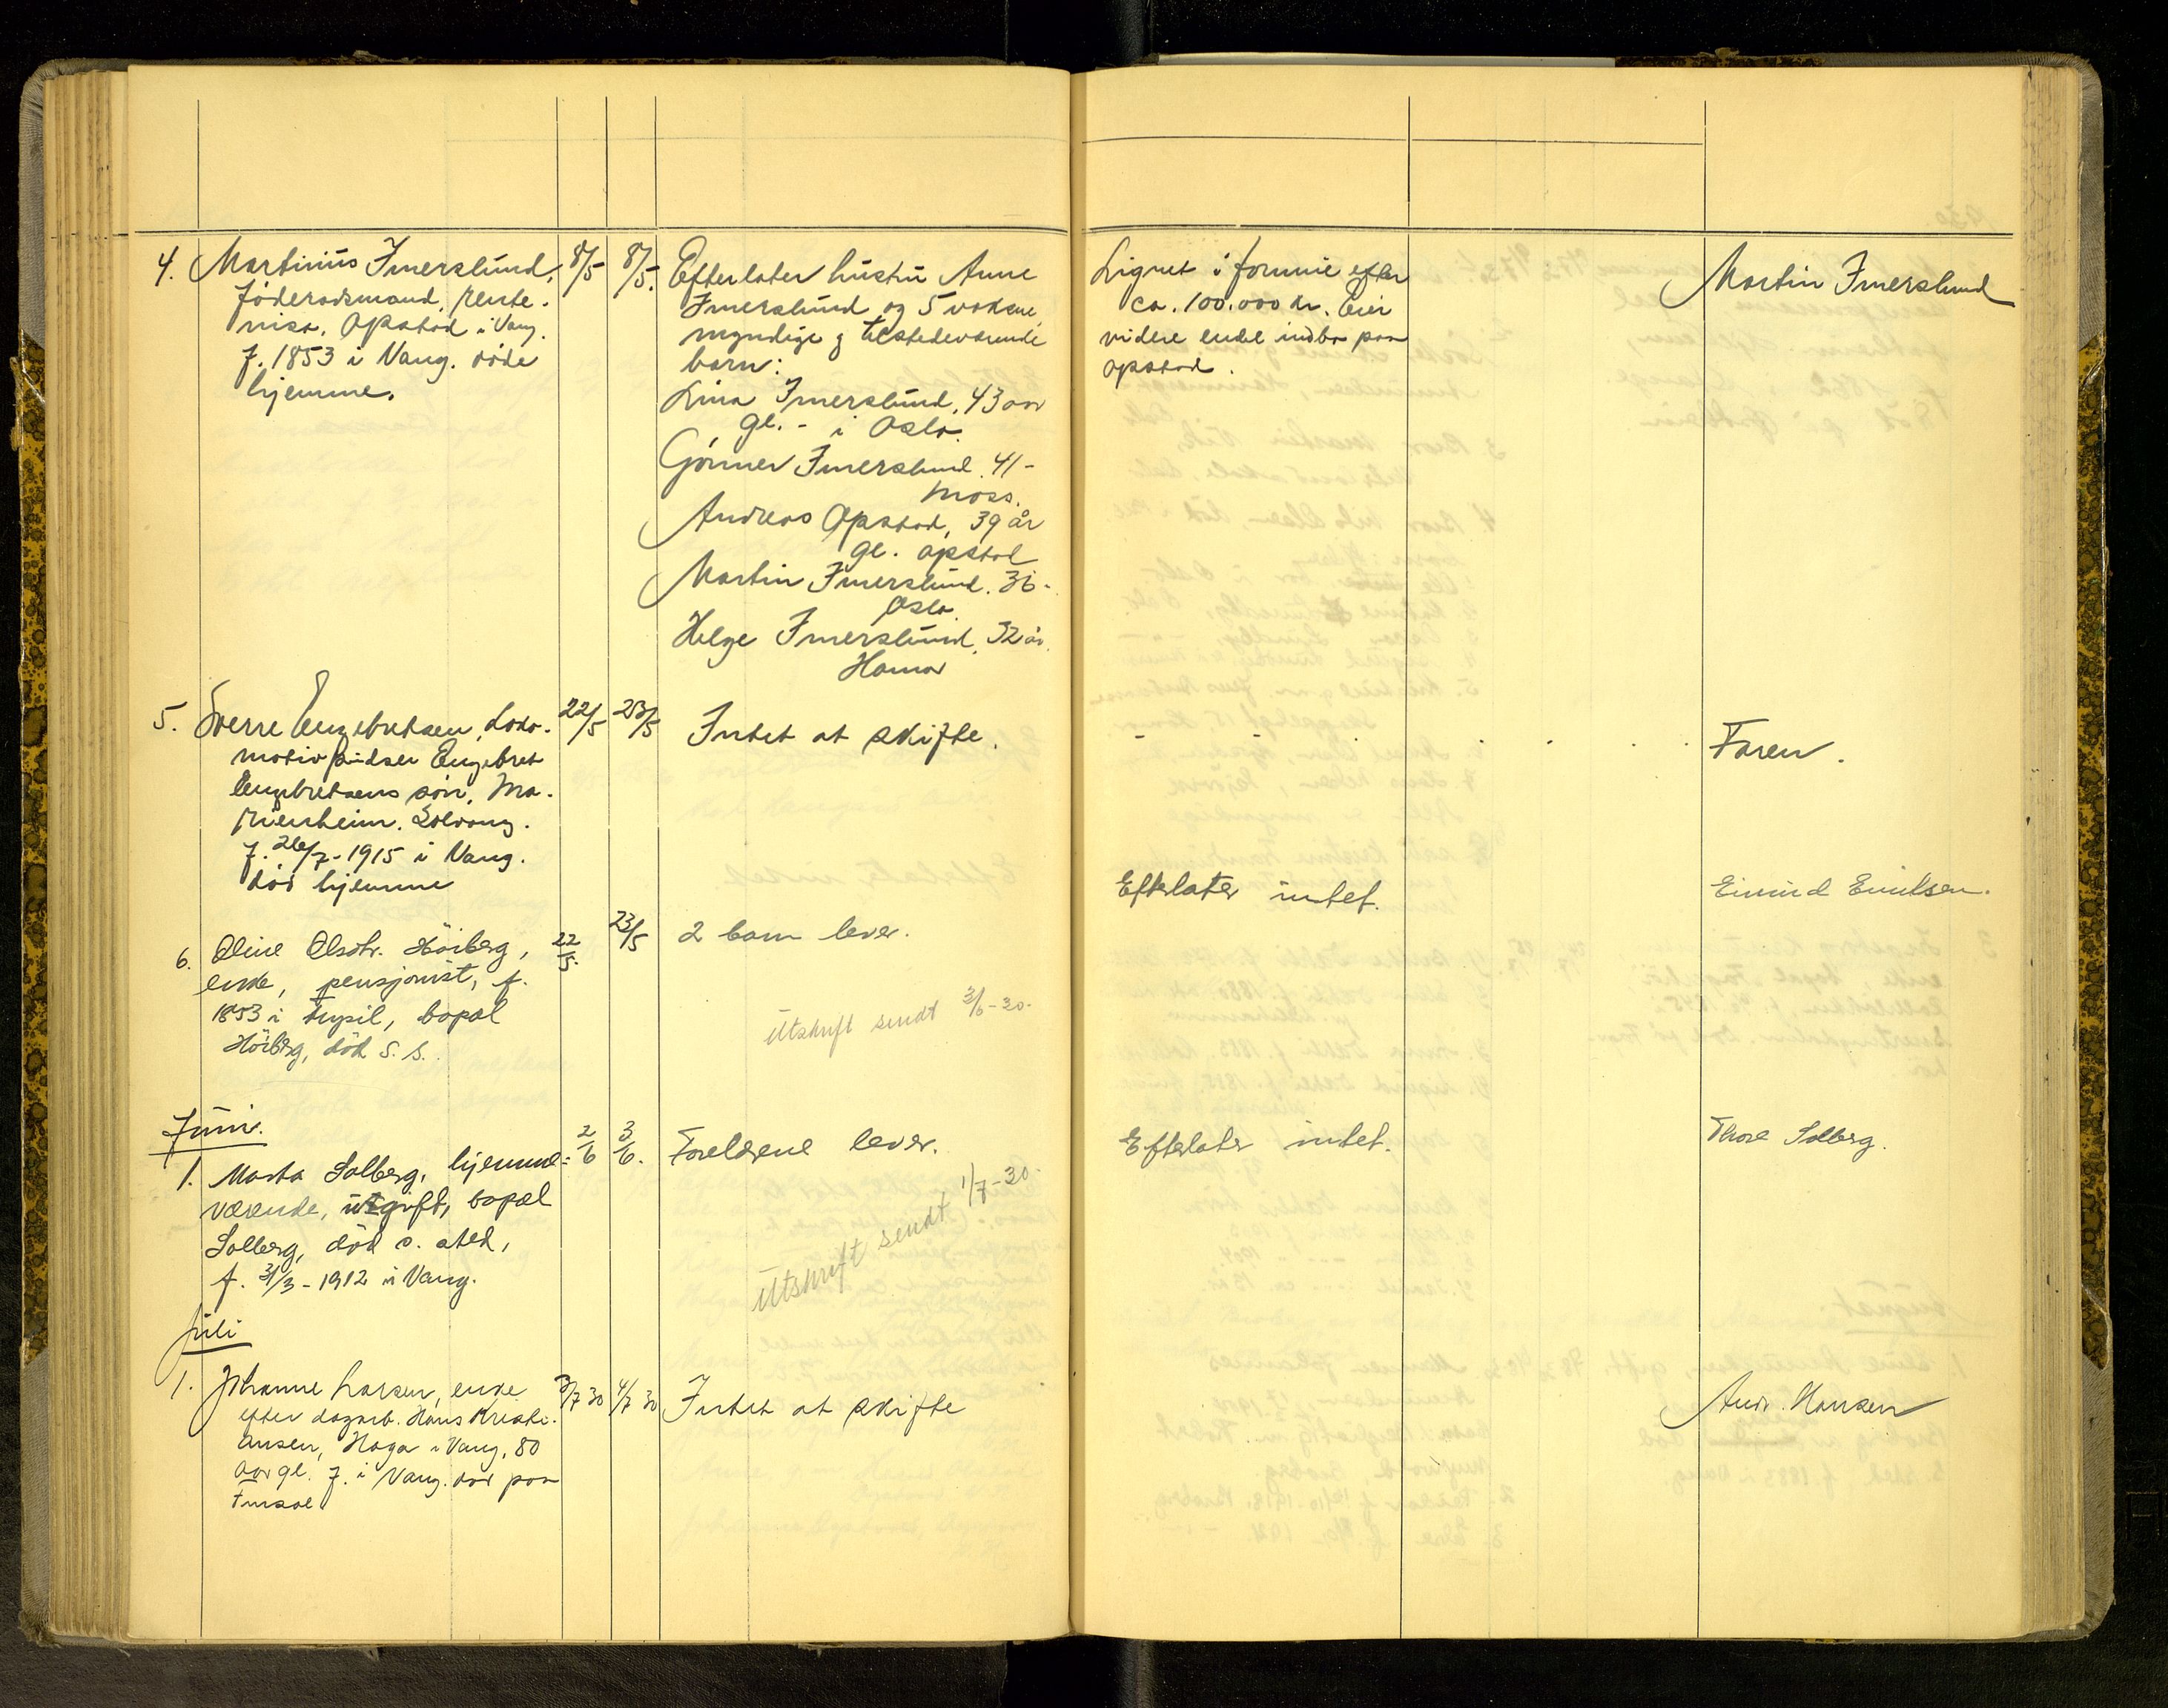 4. Martinius Imerslund,
föderadsmand, rente-
nist. Opstad i Vang.
f. 1853 i Vang. döde
hjemme.
8/5
8/5.
Efterlater hustru Anne
Imerslund og 5 voksne
myndige og tilstedeværende
barn:
Lina Imerslund, 43 aar
gl. - i Oslo.
Gunner Imerslund. 41 -
Moss.
Andreas Opstad, 39 år
gl. opstad
Martin Imerslund. 36 -
Oslo.
Helge Imerslund, 32 år.
Hamar
Lignet i formue efter
ca. 100.000 kr. Eier
videre endel indbo paa
opstad.
Martin Imerslund
5. Sverre Engebretsen, Loko-
motivpudser Engebret
Engebretsens sön,
Solvang.
f. 26/7-1915 i Vang.
död hjemme
22/5
23/5
Intet at skifte.
Faren.
6. Oline Olsdtr. Höiberg,
enke, pensjonist, f.
1853 i Trysil, bopæl
Höiberg, död s. s.
22/5.
23/5
2 barn lever.
Utskrift sendt 3/6-30.
Efterlater intet.
Emilsen.
Juni.
1. Marta Solberg, hjemme=
værende, utgift, bopæl
Solberg, död s. sted,
f. 31/3-1912 i Vang.
2/6
3/6.
Foreldrene lever.
Utskrift sendt 1/7-30.
Efterlater intet.
Thore Solberg.
Juli
1. Johanne Larsen, enke
efter dagarb. Hans Kristi-
ansen, Haga i Vang, 80
aar gl. f. i Vang. död paa
3/7 30
4/7 30
Intet at skifte
Andr. Hansen